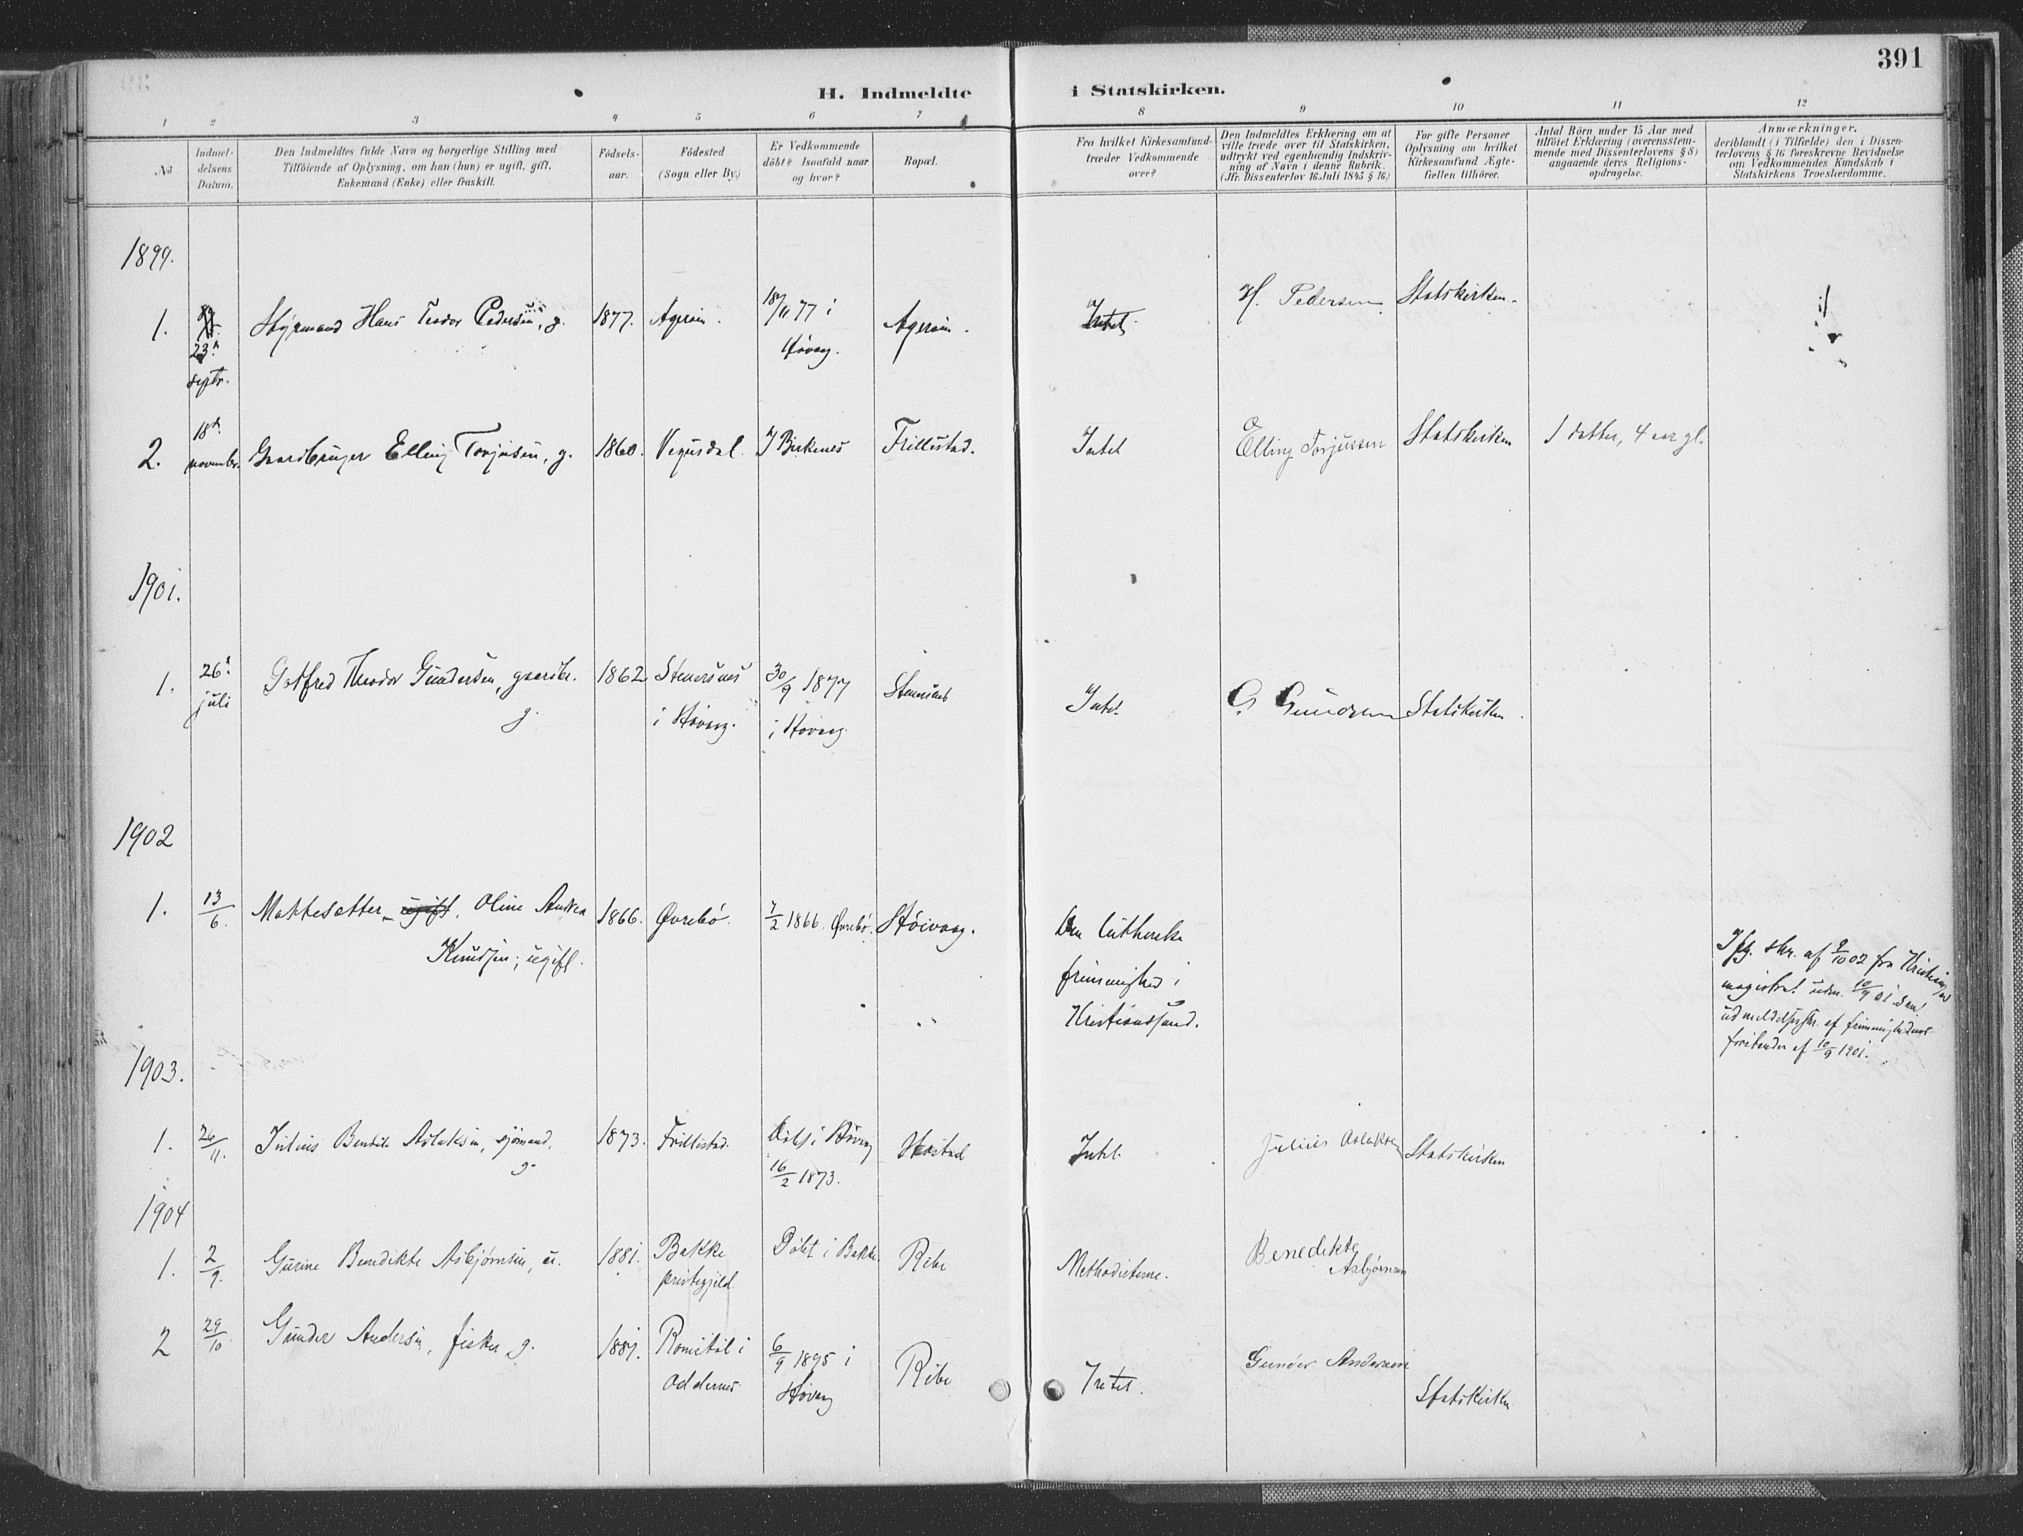 391
H. Indmeldte i Statskirken.
1 2 3 4 5 6 7 8 9 10 11 12
No
Indmel-
delsens
Datum.
Den Indmeldtes fulde Navn og borgerlige Stilling med
Tilföiende af Oplysning, om han (hun) er ugift, gift,
Enkemand (Enke) eller fraskilt.
Födsels-
aar.
Födested
(Sogn eller By.)
Er Vedkommende
döbt? Isaafald naar
og hvor?
Bopæl.
Fra hvilket Kirkesamfund
træder Vedkommende
over?
Den Indmeldtes Erklæring om at
ville træde over til Statskirken,
udtrykt ved egenhændig Indskriv-
ning af Navn i denne Rubrik.
(Jfr. Dissenterlov 16 Juli 1845 § 16.)
For gifte Personer
Oplysning om hvilket
Kirkesamfund Ægte-
fællen tilhörer.
Antal Börn under 15 Aar med
tilföiet Erklæring (overensstem-
mende med Dissenterlovens § 8)
angaaende deres Religions-
opdragelse.
Anmærkninger.
deriblandt (i Tilfælde) den i Dissen-
terlovens § 16 foreskrevne Bevidnelse
om Vedkommendes Kundskab i
Statskirkens Troesherdomme.
1899.
1. 23d septr. Styrmand Hans Teodor Pedersen, g. 1877. Agerøen. 18/11 77 i Høvaag. Agerøen. Intet. H. Pedersen Statskirken.
2. 18d november Gaardbruger Elling Torjusen, g. 1860. Vegusdal. I Birkenes Frillestad. Intet Elling Torjussen Statskirken 1 datter, 4 aar gl.
1901.
1. 26d juli Gotfred Theodor Gundersen, gaardbr. g. 1862 Stenersnes i Høvaag. 30/9 1877 i Høvaag Intet. G Gundersen Statskirken.
1902
1. 13/6. ugift. Oline
Knudsen; ugift. 1866. Øvrebø. 7/2 1866. Øvrebø. Høivaag. Den lutherske
frimenighed i
Kristianssand.
Ifg. skr. af 9/10 02 fra
magistrat 10/9 01
udmeldelsesskr. af frimenighedens
forstander af 10/9 1901.
1903.
1. 26/11. Julius Aslaksen, sjømand, g. 1873. Frillestad. Døbt i Høvaag
16/2 1873. Intet. Julius Aslaksen Statskirken
1904
1. 2/9. Gurine Benedikte Asbjørnsen, u. 1881. Bakke
prestegjeld. Døbt i Bakke. Ribe Methodisterne. Benedikte
Asbjørnsen
2 29/10. Gunder Andersen, fisker, g. i
Oddernes. 6/9 1895 i
Høvaag Ribe Intet. Gunder Andersen
Statskirken